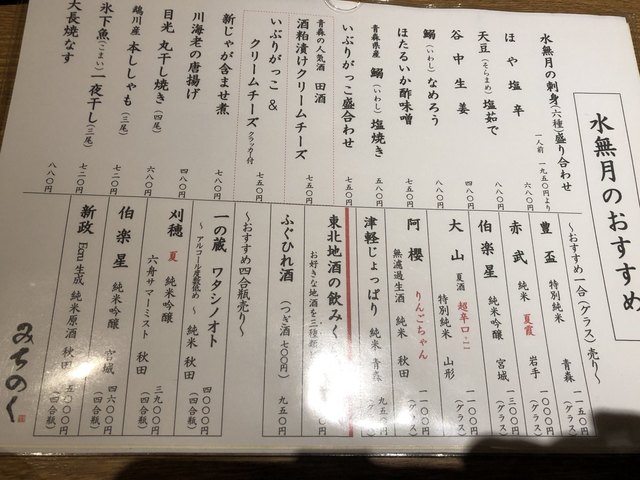 水無月のおすすめ
水無月の刺身(六種)盛り合わせ
一人前 一九五〇円より
ほや塩辛
六八〇円
天豆(そらまめ)塩茹で
谷中生姜
四八〇円
鰯(いわし)なめろう
八八〇円
ほたるいか酢味噌
七五〇円
青森県産 鰯(いわし)塩焼き
五八〇円
いぶりがっこ盛合わせ
七五〇円
青森の人気酒 田酒
酒粕漬けクリームチーズ
七五〇円
いぶりがっこ&
クリームチーズ クラッカー付
七五〇円
新じゃが含ませ煮
七八〇円
川海老の唐揚げ
四八〇円
目光 丸干し焼き(四尾)
六八〇円
鵡川産 本ししゃも(三尾)
七二〇円
氷下魚(こまい)一夜干し(三尾)
七二〇円
大長焼なす
八八〇円
〜おすすめ一合(グラス)売り〜
豊盃 特別純米 青森
一一五〇円
(グラス)
赤武 純米 夏霞 岩手
一〇〇〇円
(グラス)
伯楽星 純米吟醸 宮城
(グラス)
大山 夏酒 超辛口 特別純米 山形
一一〇〇円
(グラス)
阿櫻 りんごちゃん
無濾過生酒 純米 秋田
一一〇〇円
(グラス)
津軽じょっぱり 純米 青森
九五〇円
(グラス)
東北地酒の飲みく
お好きな地酒を三種類
ふぐひれ酒 (つぎ酒 七〇〇円)
九五〇円
〜おすすめ四合瓶売り〜
一の蔵 ワタシノオト
〜アルコール度数低め〜 純米 秋田
四〇〇〇円
(四合瓶)
刈穂 夏 純米吟醸
六舟サマーミスト 秋田
三九〇〇円
(四合瓶)
伯楽星 純米吟醸 宮城
四六〇〇円
(四合瓶)
新政 Ecru 生成 純米原酒 秋田
五〇〇〇円
(四合瓶)
みちのく